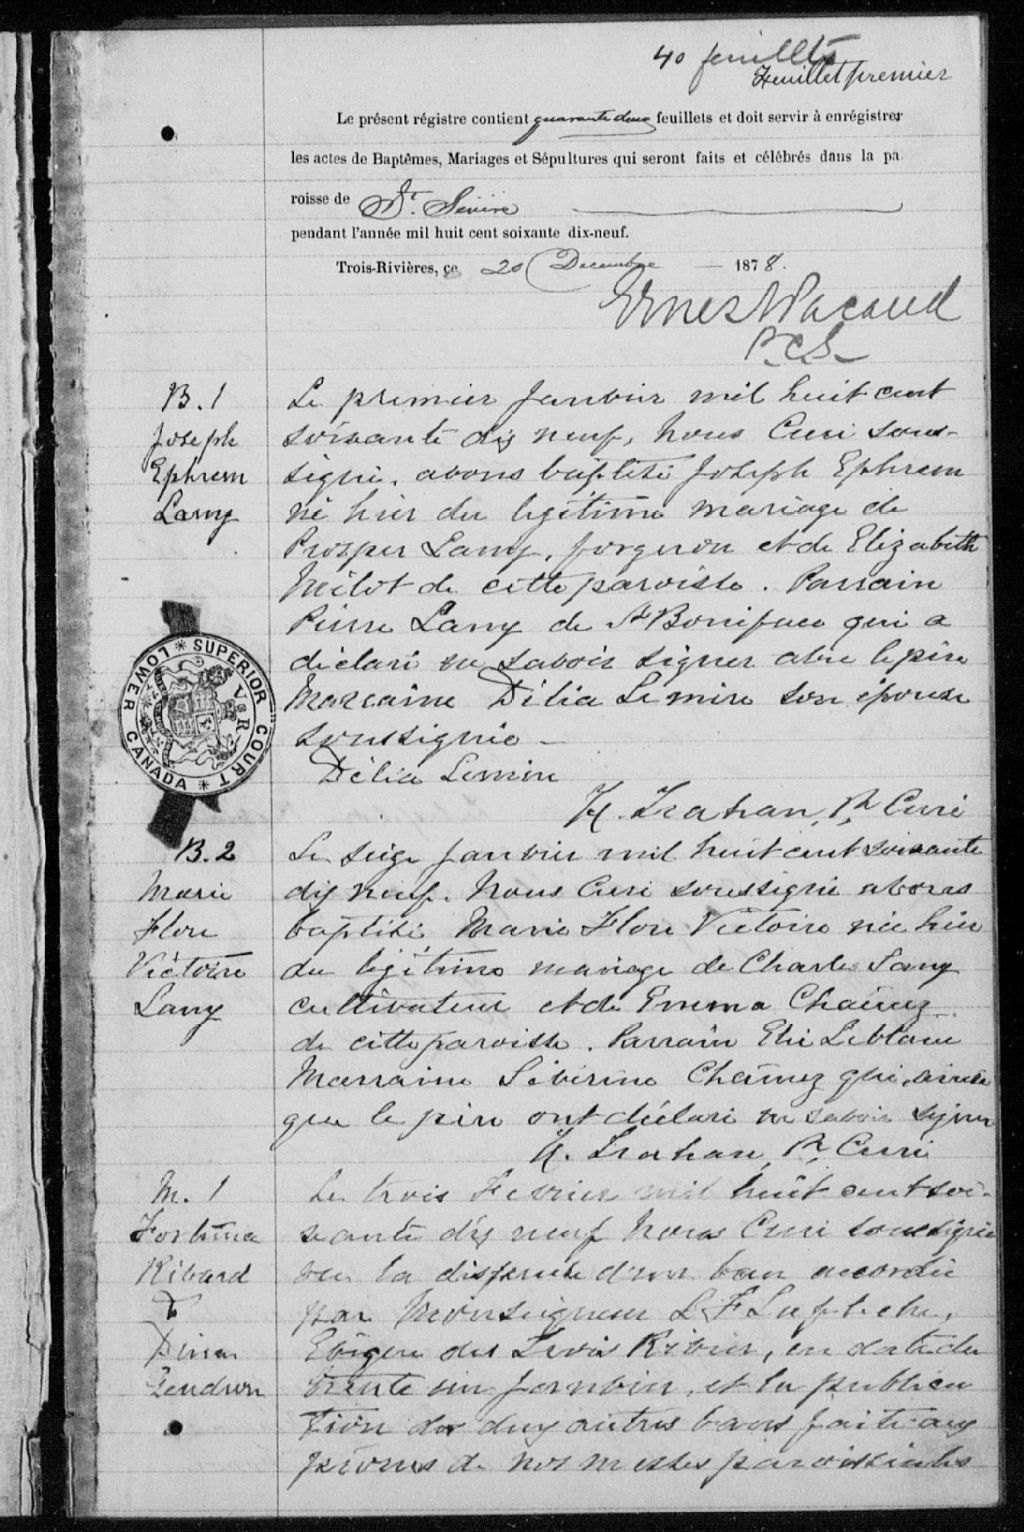 40 feuillets
Feuillet premier
Le présent régistre contient quarante deux feuillets et doit servir à enrégistrer
les actes de Baptêmes, Mariages et Sépultures qui seront faits et célébrés dans la pa
roisse de St. Sévère
pendant l'année mil huit cent soixante dix-neuf.
Trois-Rivières, ce 20 Decembre 1878.
Ernest Pacaud
P.C.S.
B. 1
Joseph
Ephrem
Lamy
Le premier Janvier mil huit cent
soixante dix neuf, nous Curé sous-
signé, avons baptisé Joseph Ephrem
né hier du légitime mariage de
Prosper Lamy, forgeron et de Elizabeth
Milot de cette paroisse. Parrain
Pierre Lamy de St Boniface qui a
déclaré ne savoir signer avec le père
Marraine Délia Lemire son épouse
soussignée
Délia Lemire
H. Trahan, Ptr Curé
SUPERIOR COURT * LOWER CANADA *
V R
B. 2
Marie
Flore
Victoire
Lamy
Le seize Janvier mil huit cent soixante
dix neuf. Nous Curé soussigné avons
baptisé Marie Flore Victoire née hier
du légitime mariage de Charles Lamy
cultivateur et de Emma Chaînez
de cette paroisse. Parrain Elie Leblanc
Marraine Séverine Chaînez qui, ainsi
que le père ont déclaré ne savoir signer
H. Trahan, Ptr Curé
M. 1
Fortuna
Ribard
&
Gendron
Le trois Février mil huit cent soi-
xante dix neuf Nous Curé soussigné
vu la dispense d'un ban accordée
par Monseigneur L F Laflèche,
Evêque des Trois Rivières, en date du
trente un Janvier, et la publica
tion des deux autres bans faite aux
prônes de nos messes paroissiales